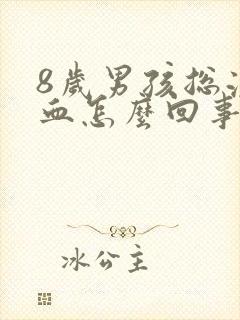 8歲男孩總流
血怎麼回事
冰公主